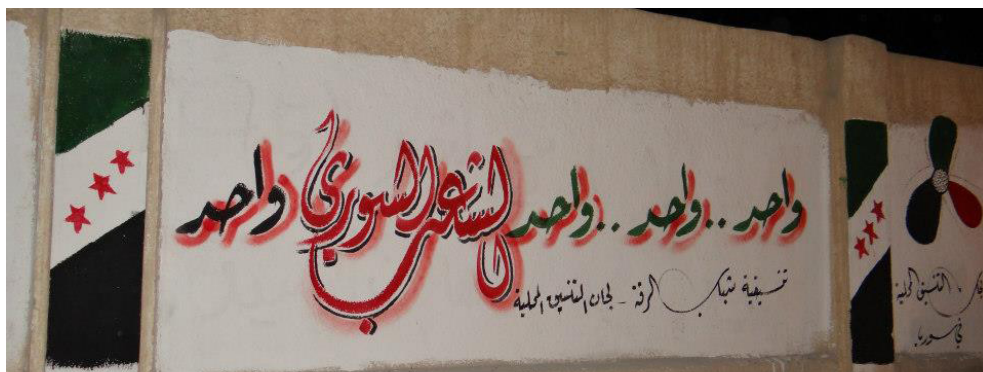 واحد .. واحد .. واحد الشعب السوري واحد
تنسيقية شباب الرقة - لجان التنسيق المحلية
التنسيق المحلية
في سوريا